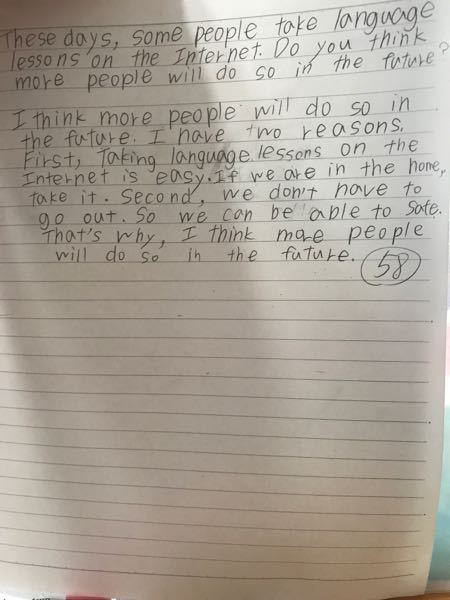 These days, some people take language
lessons on the Internet. Do you think
more people will do so in the future?
I think more people will do so in
the future. I have two reasons.
First, Taking language lessons on the
Internet is easy. If we are in the home,
take it. Second, we don't have to
go out. So we can be able to safe.
That's why, I think more people
will do so in the future.
58